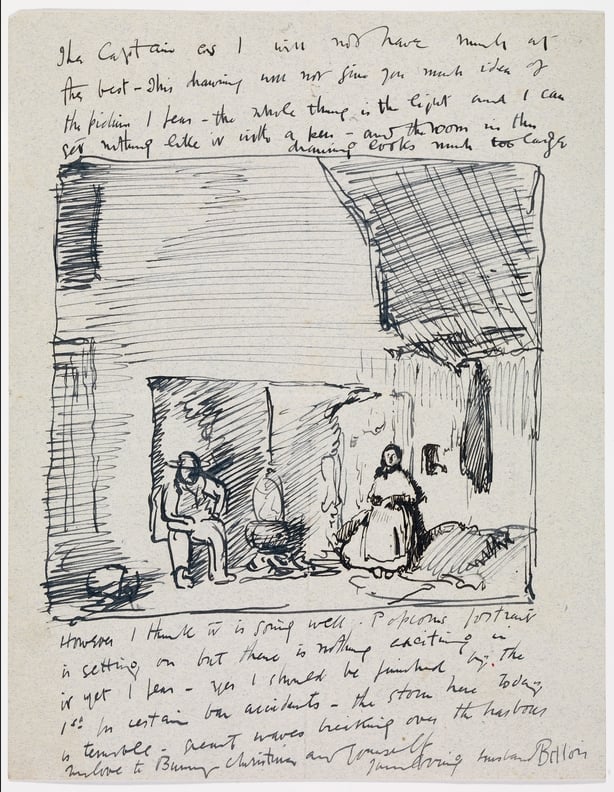 The Captain as I will not have much at
the best - This drawing will not give you much idea of
the picture I fear - the whole thing is the light and I can
get nothing like it with a pen - and the room in this
drawing looks much too large
However I think it is going well. portrait
is getting on but there is nothing exciting in
it yet I fear - yes I should be finished by the
1st for certain bar accidents - the storm here today
is terrible - great waves breaking over the harbour
my love to Bunny Christina and yourself
Your loving husband